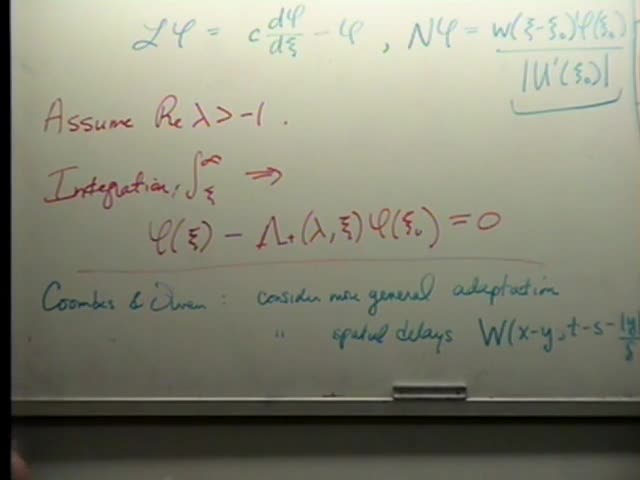 ℒφ = c dφ/dξ - φ , Nφ = w(ξ-ξ₀)φ(ξ₀) / |U'(ξ₀)|
Assume Re λ > -1 .
Integration, ∫_ξ^∞ ⇒
φ(ξ) - Λ₊(λ, ξ) φ(ξ₀) = 0
Coombes & Owen : consider more general adaptation
" spatial delays W(x-y, t-s- |y|